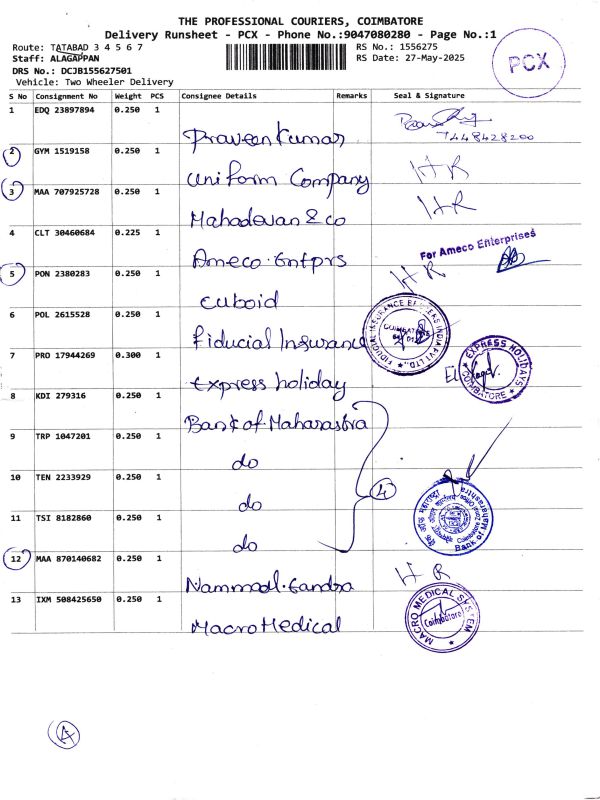 THE PROFESSIONAL COURIERS, COIMBATORE
Delivery Runsheet - PCX - Phone No.:9047080280 - Page No.:1
Route: TATABAD 3 4 5 6 7
RS No.: 1556275
Staff: ALAGAPPAN
RS Date: 27-May-2025
DRS No.: DCJB155627501
Vehicle: Two Wheeler Delivery
PCX
S No Consignment No Weight PCS Consignee Details Remarks Seal & Signature
1 EDQ 23897894 0.250 1 Praveen Kumar
7448428200
2 GYM 1519158 0.250 1 Uniform Company HR
3 MAA 707925728 0.250 1 Mahadevan & co HR
4 CLT 30460684 0.225 1 Ameco. Entprs For Ameco Enterprises
5 PON 2380283 0.250 1 cuboid HR
6 POL 2615528 0.250 1 Fiducial Insurance
7 PRO 17944269 0.300 1 Express holiday EXPRESS HOLIDAYS COIMBATORE
8 KDI 279316 0.250 1 Bank of Maharastra
9 TRP 1047201 0.250 1 do
10 TEN 2233929 0.250 1 do 4
11 TSI 8182860 0.250 1 do Bank of Maharashtra
12 MAA 870140682 0.250 1 HR
13 IXM 508425650 0.250 1 Macro Medical MACRO MEDICAL SYSTEM Coimbatore
A